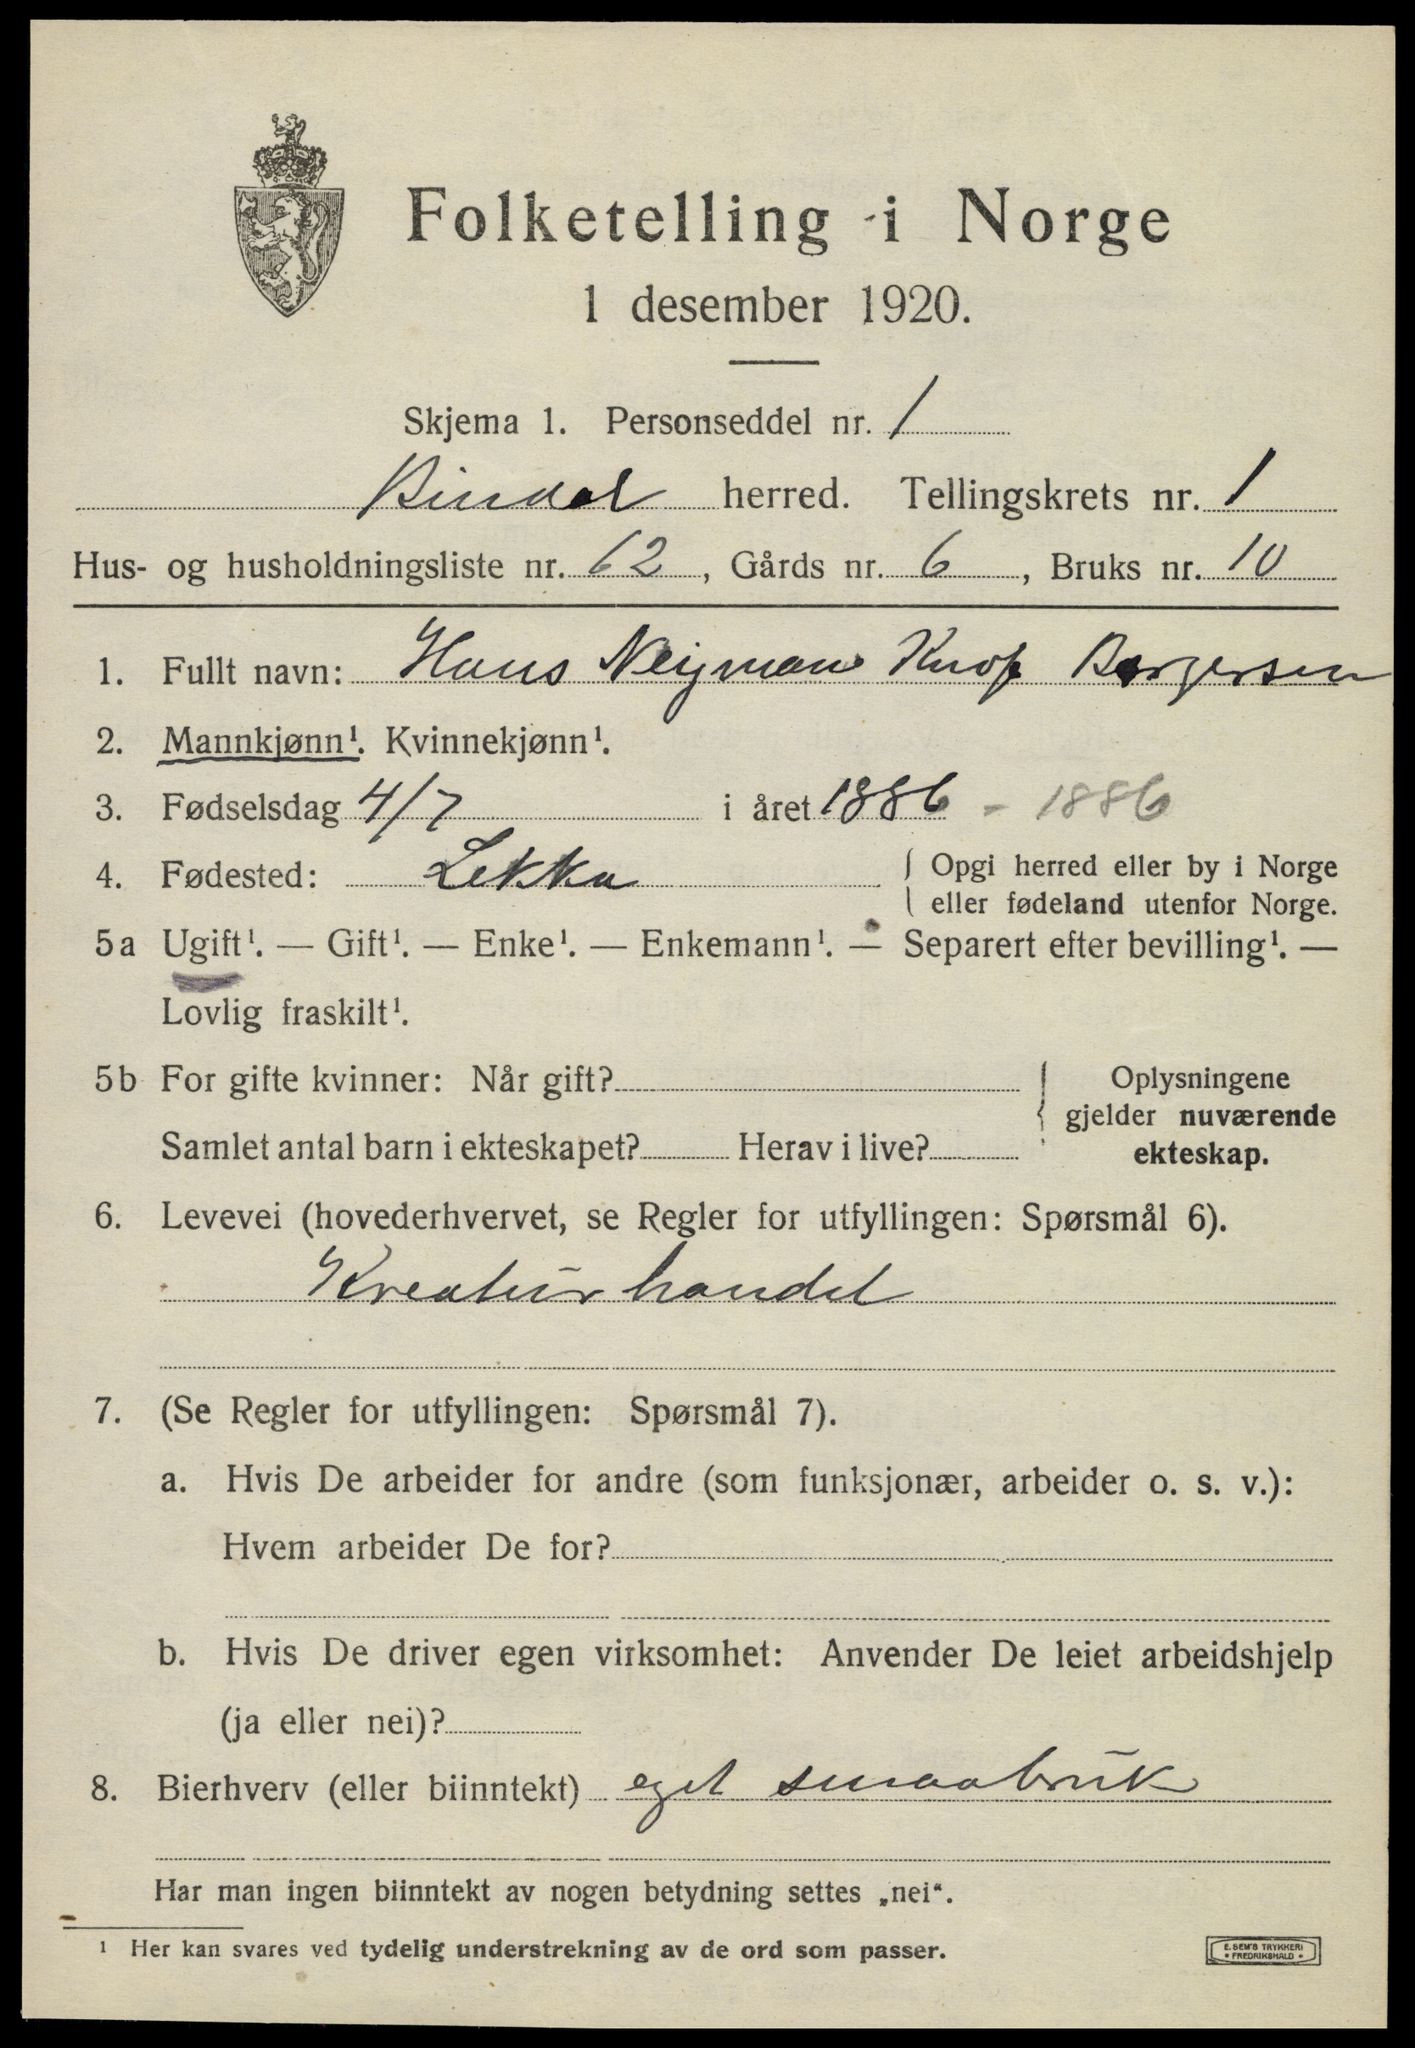 Folketelling i Norge
1 desember 1920.
Skjema 1. Personseddel nr. 1
Bindal herred. Tellingskrets nr. 1
Hus- og husholdningsliste nr. 62, Gårds nr. 6, Bruks nr. 10
1. Fullt navn: Hans Neijman Knof Borgersen
2. Mannkjønn¹. Kvinnekjønn¹.
3. Fødselsdag 4/7 i året 1886 - 1886
4. Fødested: Lekka
{ Opgi herred eller by i Norge
eller fødeland utenfor Norge.
5a Ugift¹. — Gift¹. — Enke¹. — Enkemann¹. — Separert efter bevilling¹. —
Lovlig fraskilt¹.
5b For gifte kvinner: Når gift?
Samlet antal barn i ekteskapet? Herav i live?
{ Oplysningene
gjelder nuværende
ekteskap.
6. Levevei (hovederhvervet, se Regler for utfyllingen: Spørsmål 6).
Kreaturhandel
7. (Se Regler for utfyllingen: Spørsmål 7).
a. Hvis De arbeider for andre (som funksjonær, arbeider o. s. v.):
Hvem arbeider De for?
b. Hvis De driver egen virksomhet: Anvender De leiet arbeidshjelp
(ja eller nei)?
8. Bierhverv (eller biinntekt) eget smaabruk
Har man ingen biinntekt av nogen betydning settes „nei“.
¹ Her kan svares ved tydelig understrekning av de ord som passer.
E. SEM'S TRYKKERI
• FREDRIKSHALD •